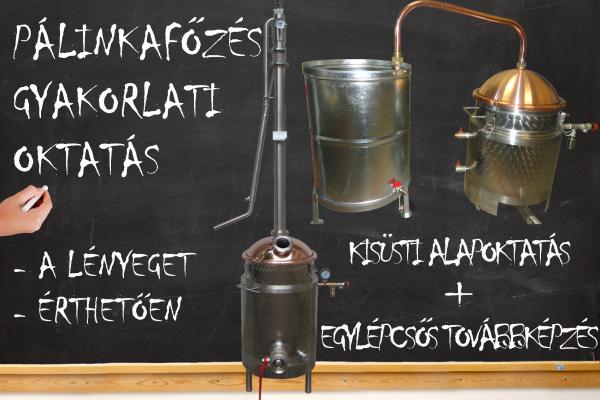 PÁLINKAFŐZÉS
GYAKORLATI
OKTATÁS
- A LÉNYEGET
- ÉRTHETŐEN
KISÜSTI ALAPOKTATÁS
+
EGYLÉPCSŐS TOVÁBBKÉPZÉS